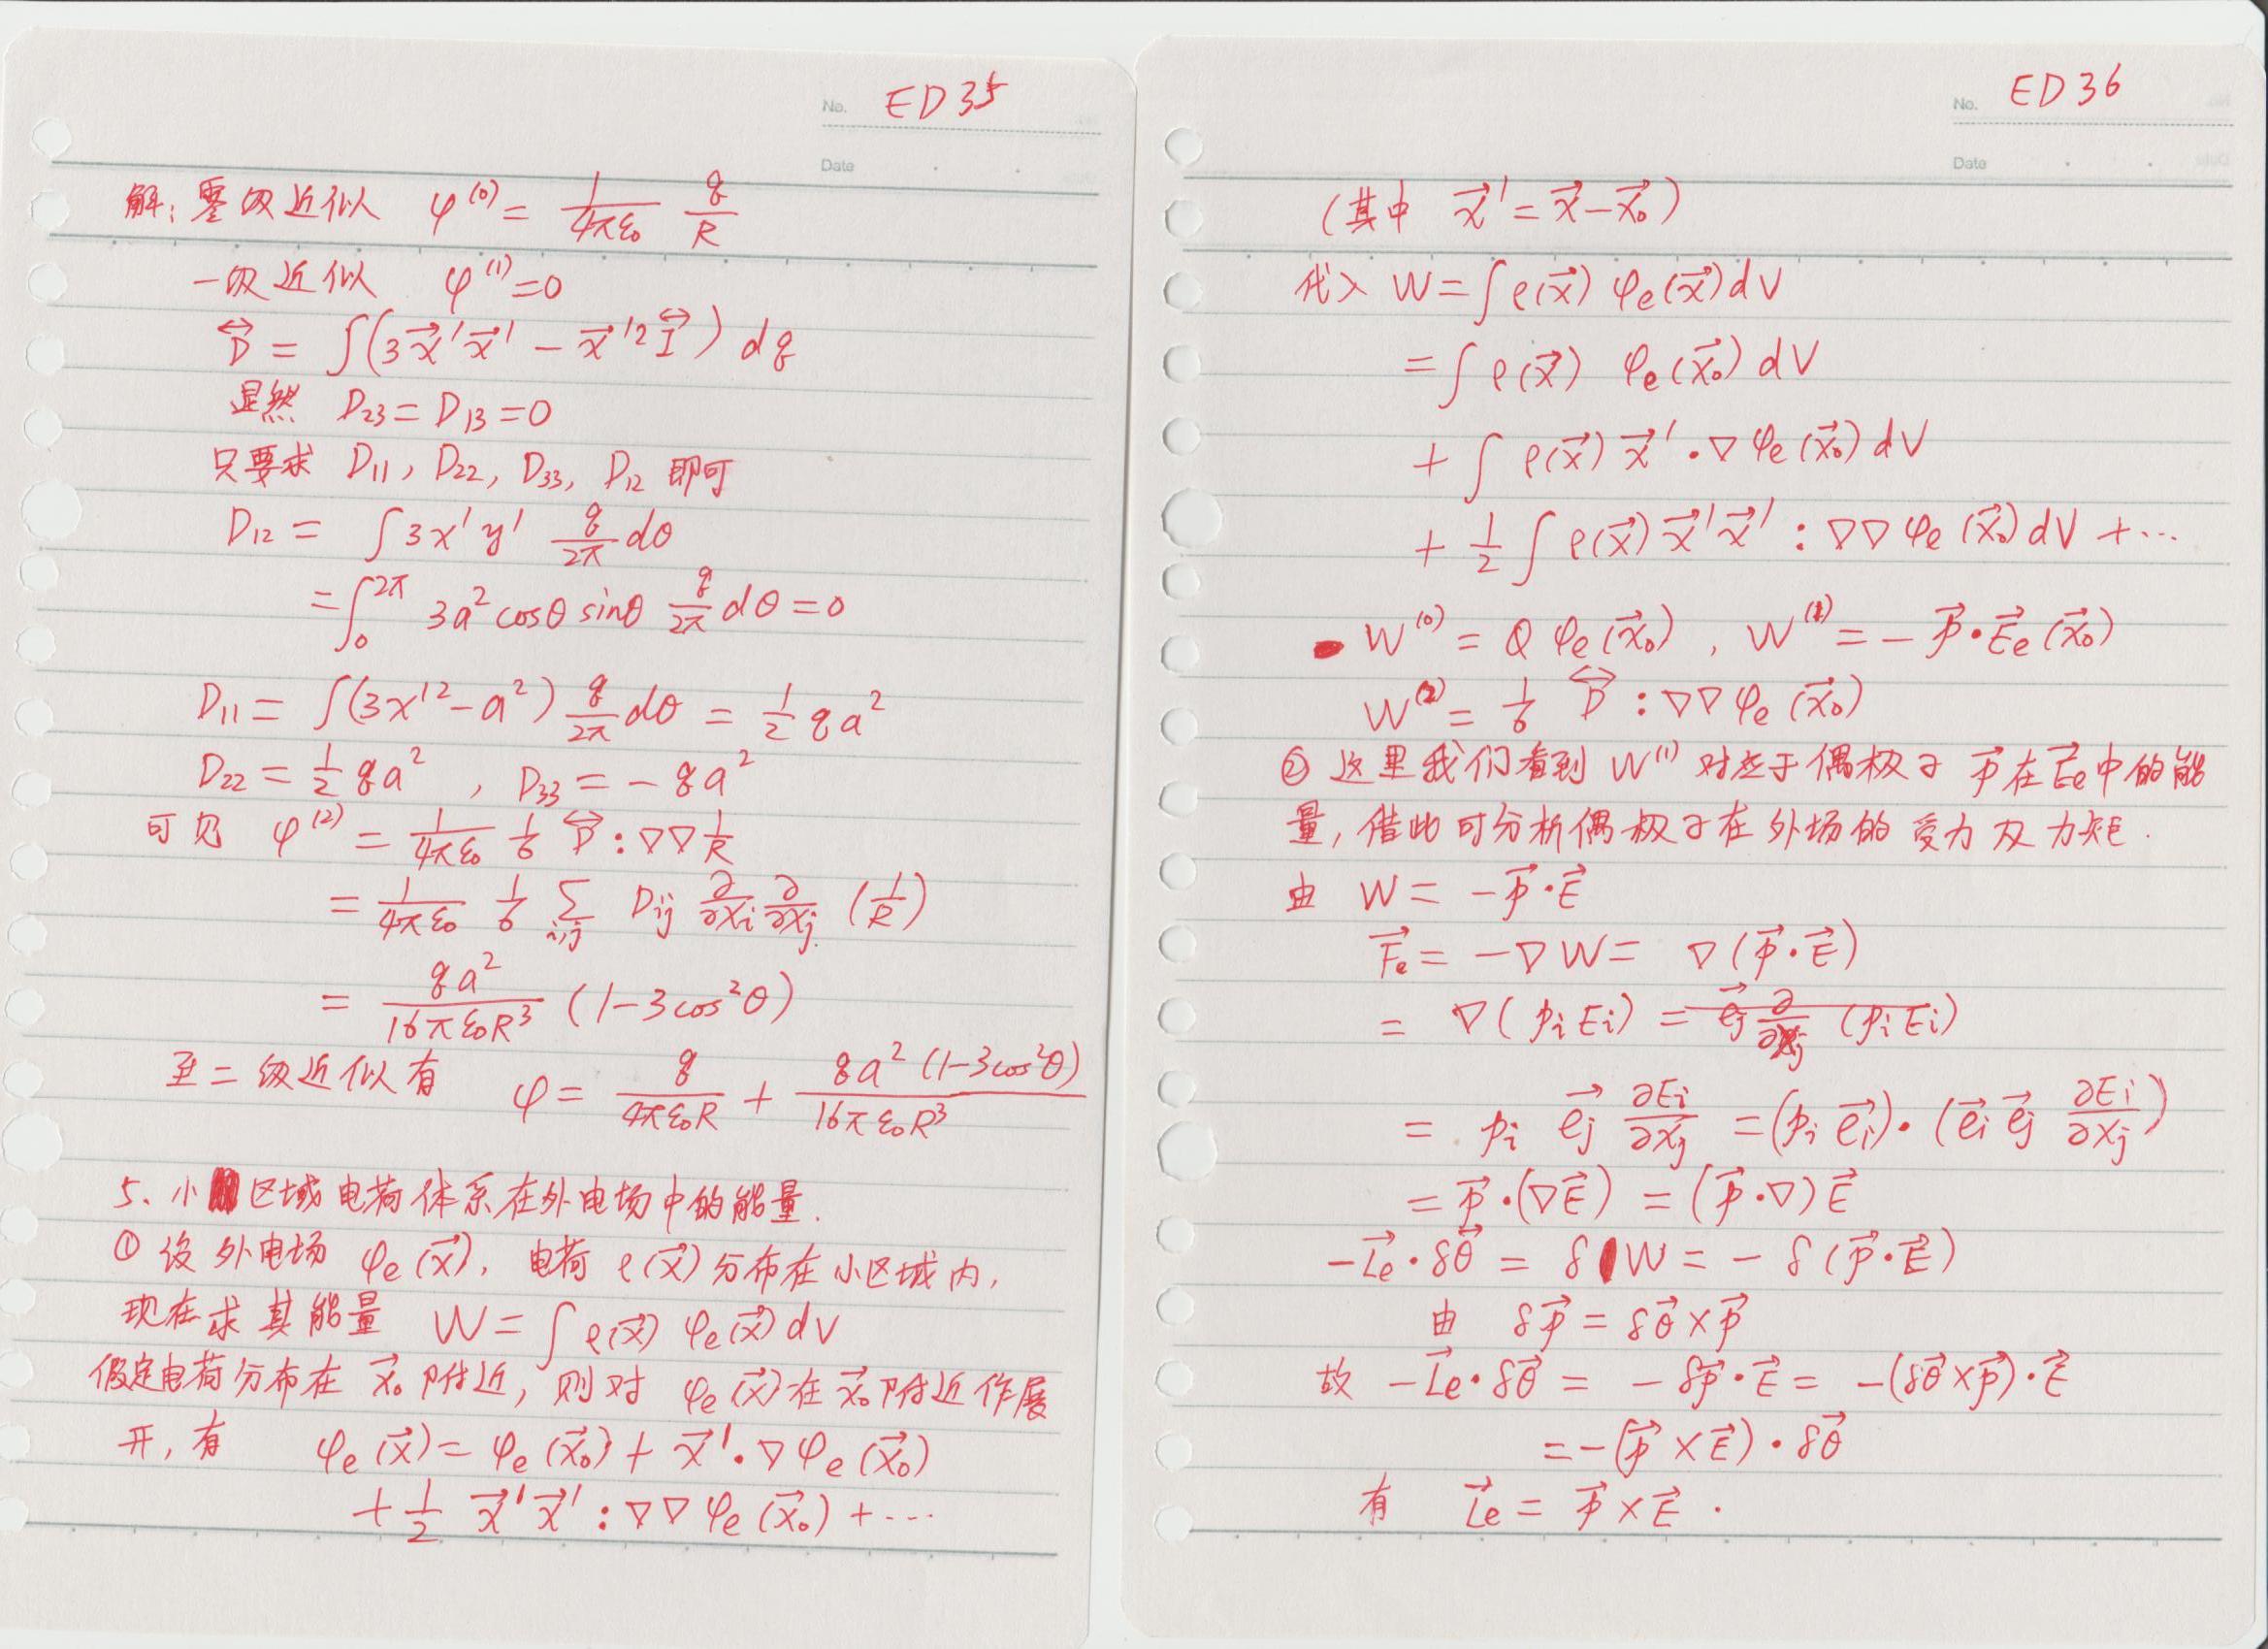 No. ED35
Date
解：零级近似 φ⁽⁰⁾ = 1/(4πε₀) q/R
一级近似 φ⁽¹⁾=0
D⃡ = ∫(3x⃗′x⃗′ − x⃗′² I⃡) dq
显然 D₂₃ = D₁₃ = 0
只要求 D₁₁, D₂₂, D₃₃, D₁₂ 即可
D₁₂ = ∫3x′y′ q/(2π) dθ
= ∫₀^{2π} 3a² cosθ sinθ q/(2π) dθ = 0
D₁₁ = ∫(3x′² − a²) q/(2π) dθ = 1/2 qa²
D₂₂ = 1/2 qa² , D₃₃ = − qa²
可见 φ⁽²⁾ = 1/(4πε₀) 1/6 D⃡ : ∇∇ 1/R
= 1/(4πε₀) 1/6 Σ_{i,j} D_{ij} ∂/∂x_i ∂/∂x_j (1/R)
= qa²/(16πε₀R³) (1−3cos²θ)
至二级近似有 φ = q/(4πε₀R) + qa²(1−3cos²θ)/(16πε₀R³)
5、小区域电荷体系在外电场中的能量.
① 设外电场 φₑ(x⃗), 电荷 ρ(x⃗) 分布在小区域内,
现在求其能量 W = ∫ρ(x⃗) φₑ(x⃗) dV
假定电荷分布在 x⃗₀ 附近, 则对 φₑ(x⃗) 在 x⃗₀ 附近作展
开, 有 φₑ(x⃗) = φₑ(x⃗₀) + x⃗′·∇φₑ(x⃗₀)
+ 1/2 x⃗′x⃗′ : ∇∇φₑ(x⃗₀) + ⋯
No. ED36
Date
(其中 x⃗′ = x⃗ − x⃗₀)
代入 W = ∫ρ(x⃗) φₑ(x⃗) dV
= ∫ρ(x⃗) φₑ(x⃗₀) dV
+ ∫ρ(x⃗) x⃗′·∇φₑ(x⃗₀) dV
+ 1/2 ∫ρ(x⃗) x⃗′x⃗′ : ∇∇φₑ(x⃗₀) dV + ⋯
W⁽⁰⁾ = Q φₑ(x⃗₀) , W⁽¹⁾ = − p⃗·E⃗ₑ(x⃗₀)
W⁽²⁾ = 1/6 D⃡ : ∇∇φₑ(x⃗₀)
② 这里我们看到 W⁽¹⁾ 对应于偶极子 p⃗ 在 E⃗ₑ 中的能
量, 借此可分析偶极子在外场的受力及力矩.
由 W = − p⃗·E⃗
F⃗ₑ = −∇W = ∇(p⃗·E⃗)
= ∇(p_i E_i) = e⃗_j ∂/∂x_j (p_i E_i)
= p_i e⃗_j ∂E_i/∂x_j = (p_i e⃗_i)·(e⃗_i e⃗_j ∂E_i/∂x_j)
= p⃗·(∇E⃗) = (p⃗·∇)E⃗
−L⃗ₑ·δθ⃗ = δW = − δ(p⃗·E⃗)
由 δp⃗ = δθ⃗ × p⃗
故 −L⃗ₑ·δθ⃗ = − δp⃗·E⃗ = −(δθ⃗×p⃗)·E⃗
= −(p⃗×E⃗)·δθ⃗
有 L⃗ₑ = p⃗×E⃗ .